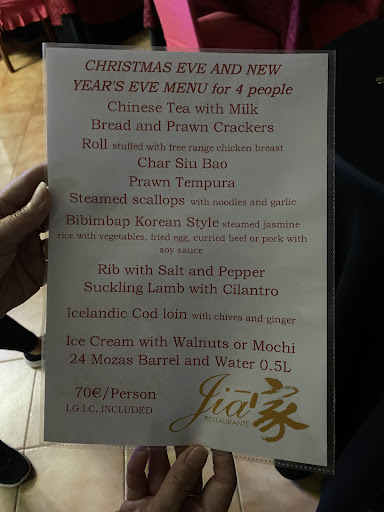 CHRISTMAS EVE AND NEW
YEAR'S EVE MENU for 4 people
Chinese Tea with Milk
Bread and Prawn Crackers
Roll stuffed with free range chicken breast
Char Siu Bao
Prawn Tempura
Steamed scallops with noodles and garlic
Bibimbap Korean Style steamed jasmine
rice with vegetables, fried egg, curried beef or pork with
soy sauce
Rib with Salt and Pepper
Suckling Lamb with Cilantro
Icelandic Cod loin with chives and ginger
Ice Cream with Walnuts or Mochi
24 Mozas Barrel and Water 0.5L
70€/Person
I.G.I.C. INCLUDED
Jiā 家
RESTAURANTE